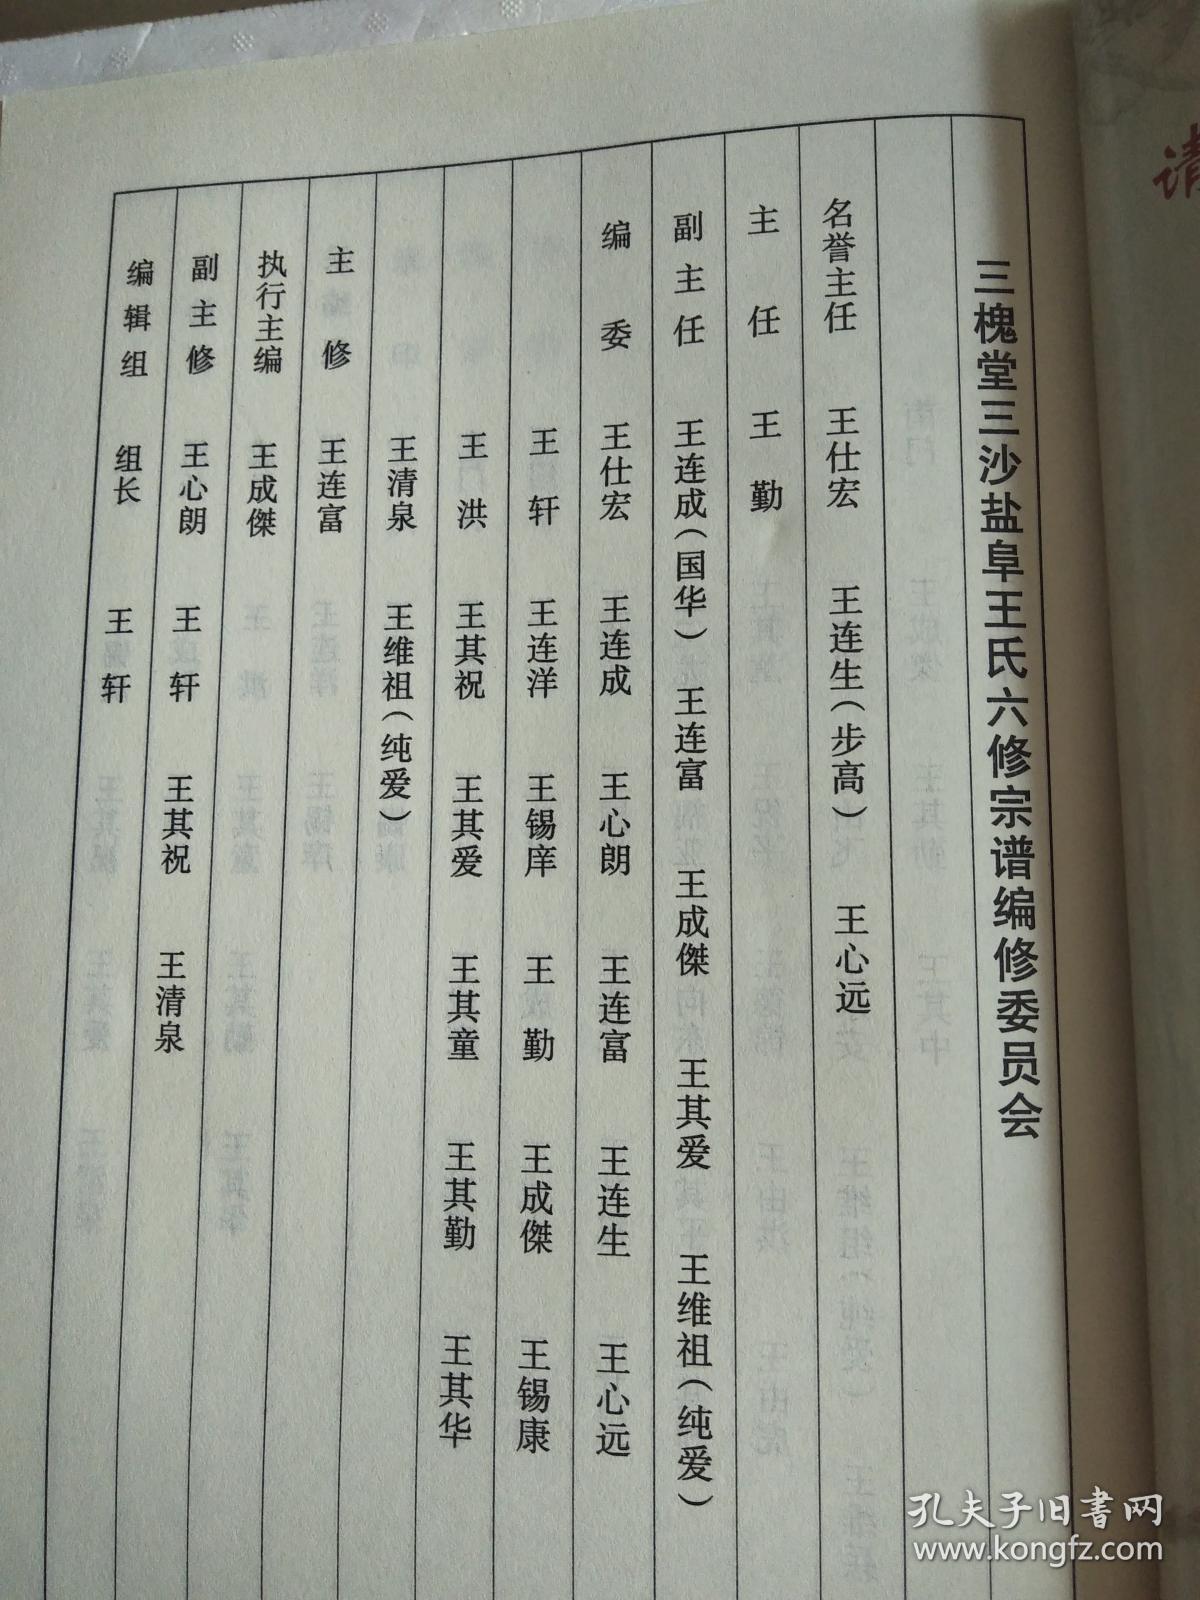 三槐堂三沙盐阜王氏六修宗谱编修委员会
名誉主任 王仕宏 王连生(步高) 王心远
主任 王勤
副主任 王连成(国华) 王连富 王成傑 王其爱 王维祖(纯爱)
编委 王仕宏 王连成 王心朗 王连富 王连生 王心远
王轩 王连洋 王锡庠 王勤 王成傑 王锡康
王洪 王其祝 王其爱 王其童 王其勤 王其华
王清泉 王维祖(纯爱)
主修 王连富
执行主编 王成傑
副主修 王心朗 王轩 王其祝 王清泉
编辑组 组长 王轩
请
孔夫子旧书网
www.kongfz.com